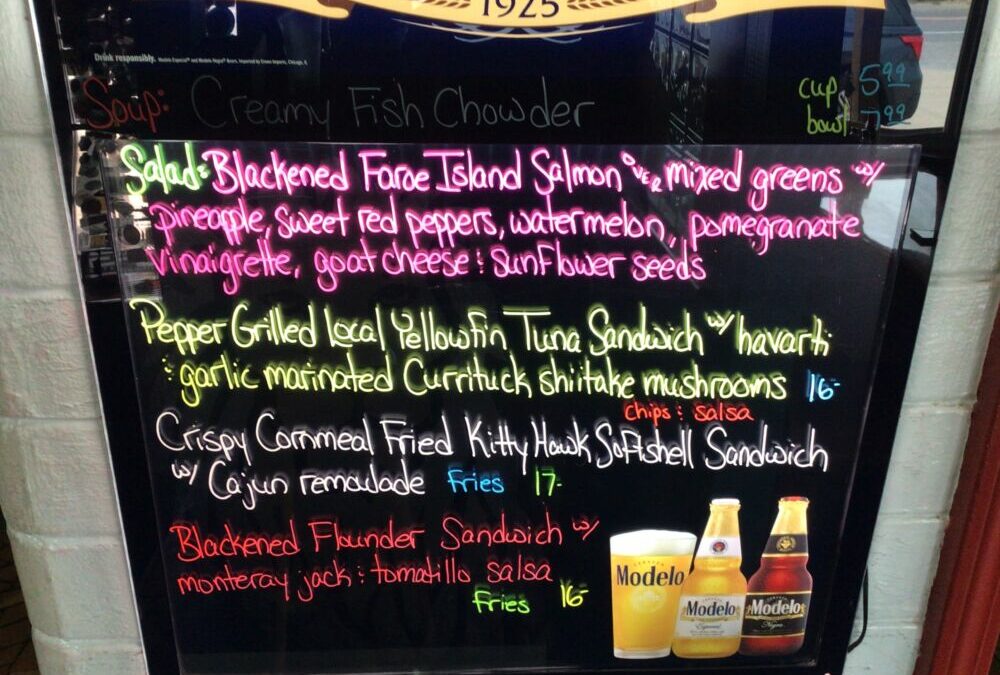 1925
Drink responsibly. Modelo Especial® and Modelo Negra® Beers. Imported by Crown Imports, Chicago, IL
Soup: Creamy Fish Chowder
cup 5.99
bowl 7.99
Salad: Blackened Faroe Island Salmon over mixed greens w/
pineapple, sweet red peppers, watermelon, pomegranate
vinaigrette, goat cheese & sunflower seeds
Pepper Grilled Local Yellowfin Tuna Sandwich w/ havarti
& garlic marinated Currituck shiitake mushrooms 16-
chips & salsa
Crispy Cornmeal Fried Kitty Hawk Softshell Sandwich
w/ Cajun remoulade fries 17-
Blackened Flounder Sandwich w/
monteray jack & tomatillo salsa
fries 16-
Modelo
Modelo
Especial
Modelo
Negra